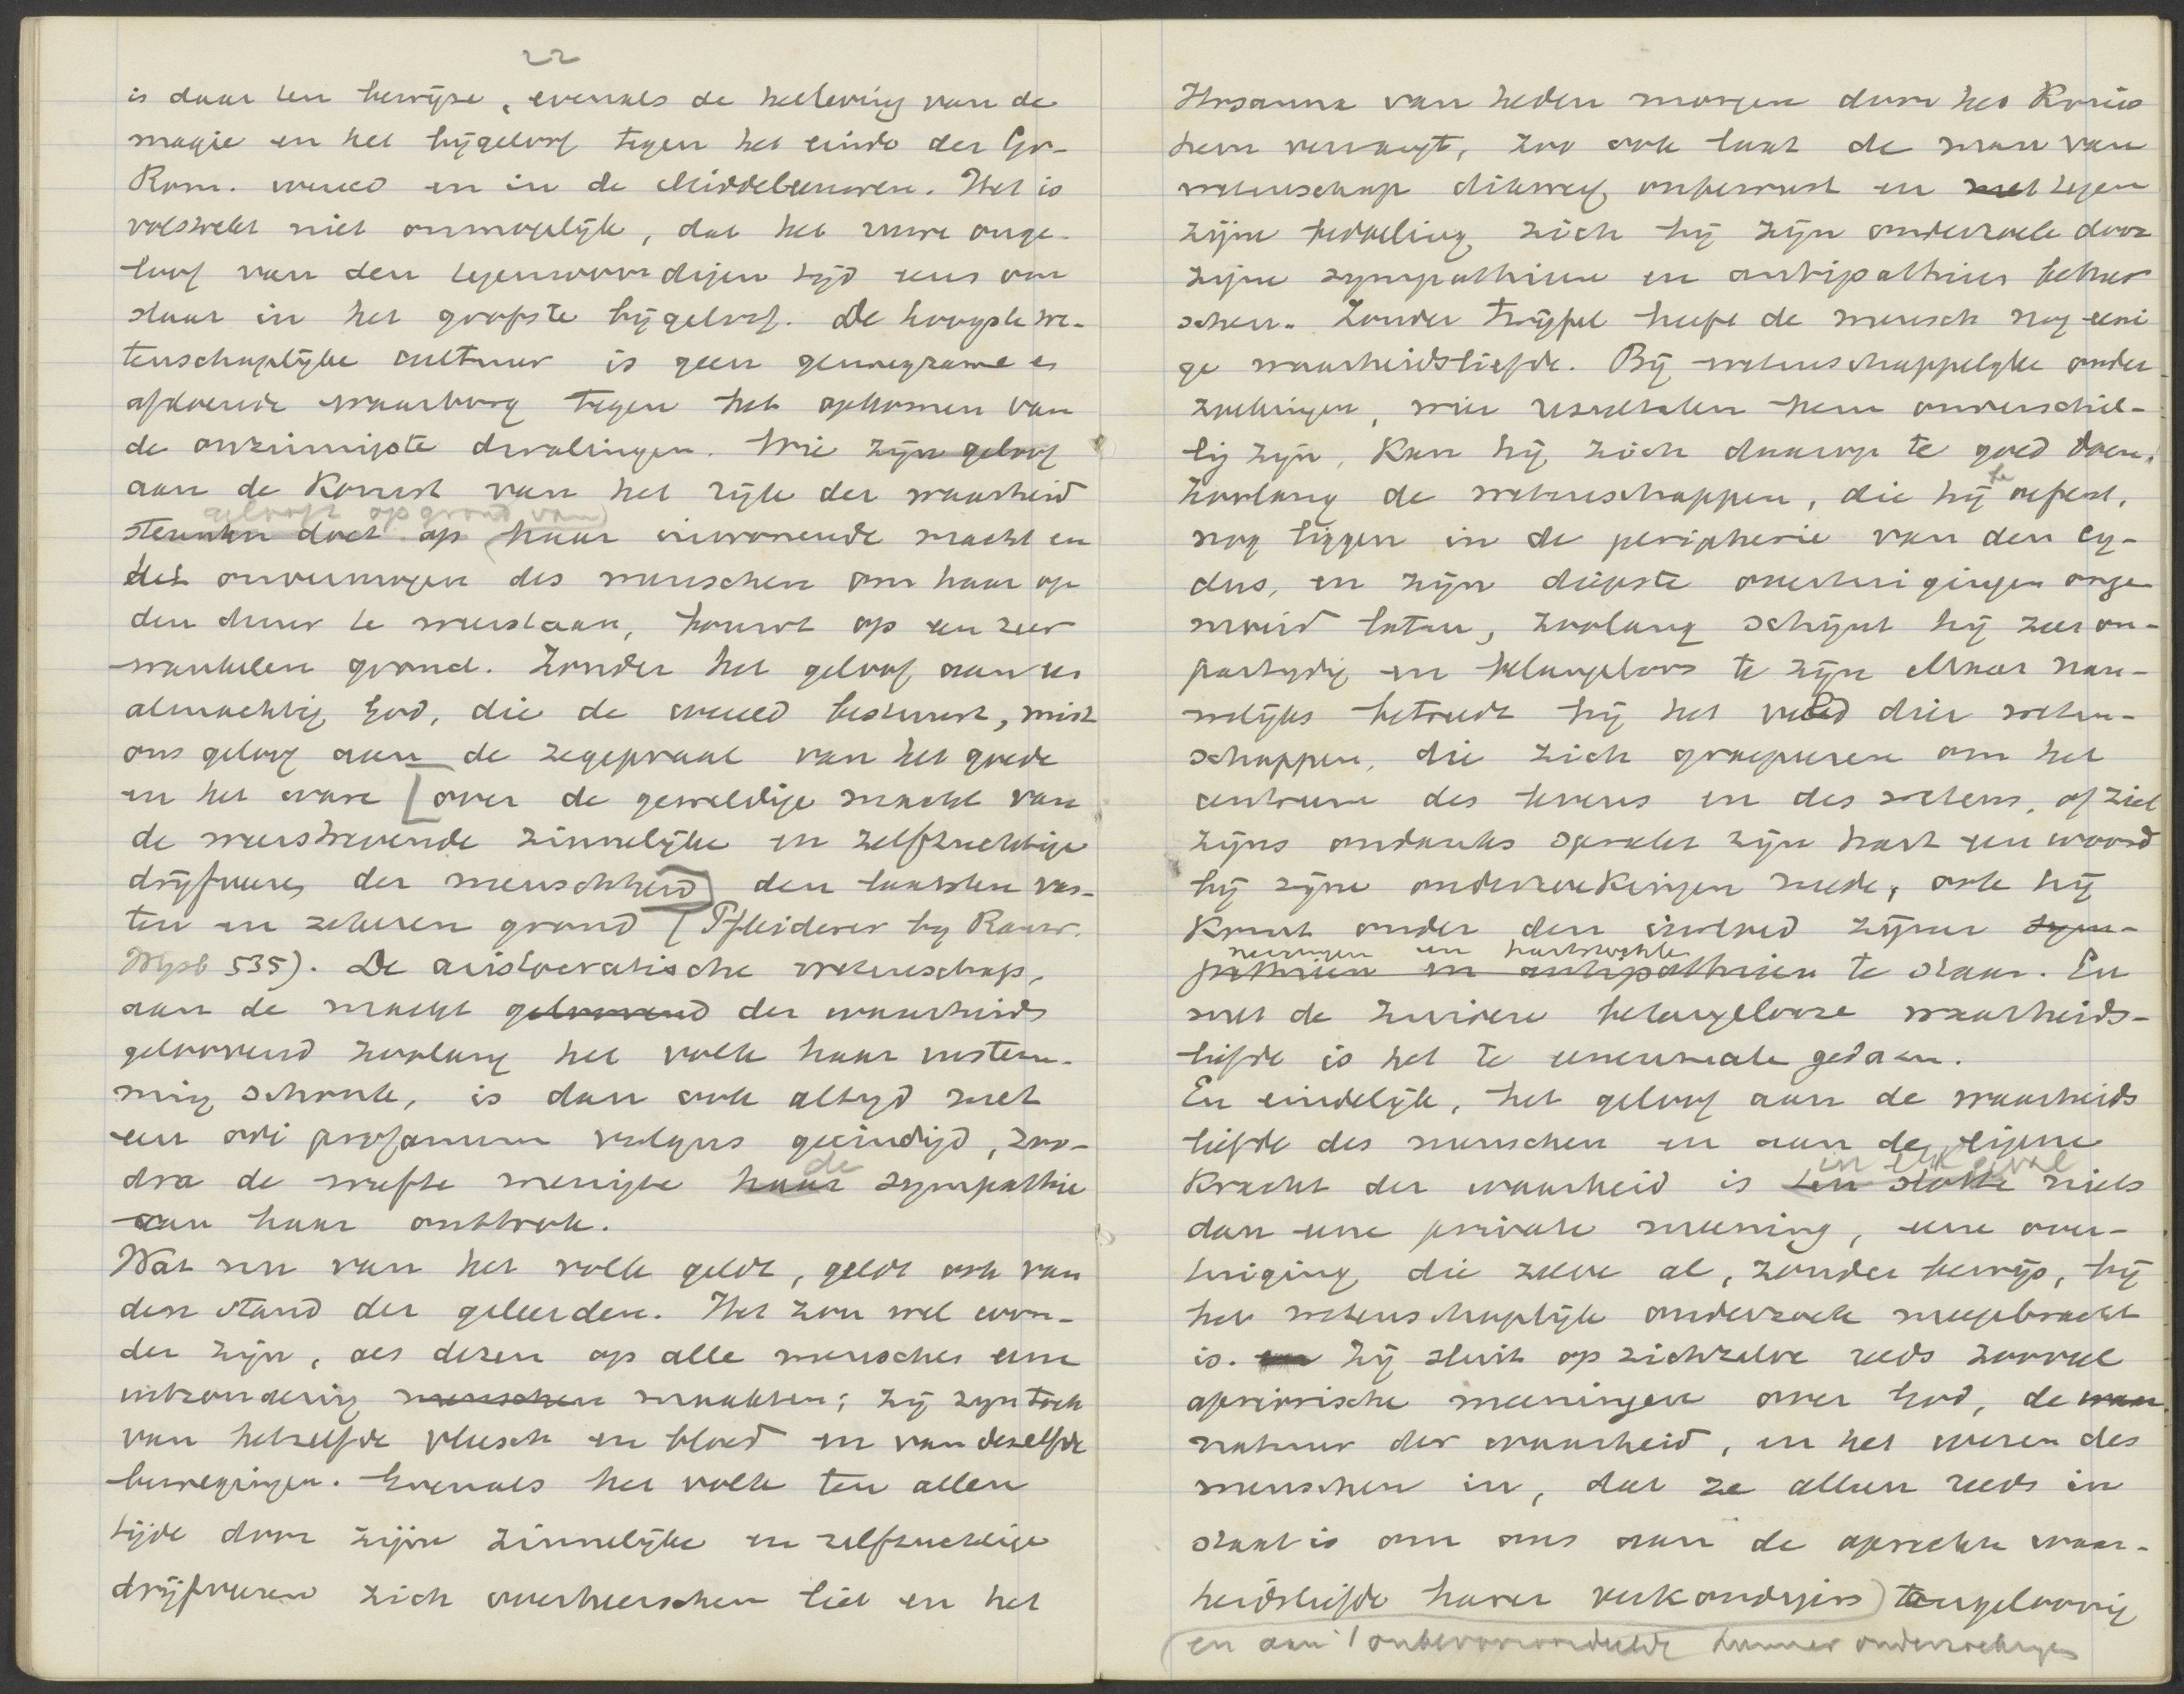 22
is daar ten bewijze, evenals de herleving van de
magie en het bijgeloof tegen het einde der Gr.-
Rom. wereld en in de Middeleeuwen. Het is
volstrekt niet onmogelijk, dat het ware onge-
loof van den tegenwoordigen tijd eens om
slaat in het grofste bijgeloof. De hoogste we-
tenschaplijke cultuur is geen genoegzame en
afdoende waarborg tegen het opkomen van
de onzinnigste dwalingen. Wie zijn geloof
aan de komst van het rijk der waarheid
gelooft op grond van
steunen doet op haar inwonende macht en
het onvermogen des menschen om haar op
den duur te weerstaan, bouwt op een zeer
wankelen grond. Zonder het geloof aan een
almachtig God, die de wereld bestuurt, mist
ons geloof aan de zegepraal van het goede
en het ware [over de geweldige macht van
de weerstrevende zinnelijke en zelfzuchtige
drijfveeren der menschheid] den laatsten vas-
ten en zekeren grond (Pfleiderer by Rauw.
Wysb 535). De aristocratische wetenschap,
aan de macht geloovend der waarheids
geloovend zoolang het volk haar instem-
ming schonk, is dan ook altijd met
een odi profanum vulgus geëindigd, zoo-
dra de wufte menigte haar de sympathie
aan haar onttrok.
Wat nu van het volk geldt, geldt ook van
den stand der geleerden. Het zou wel won-
der zijn, als dezen op alle menschen eene
uitzondering menschen maakten; zij zyn toch
van hetzelfde vleesch en bloed en van dezelfde
bewegingen. Evenals het volk ten allen
tijde door zijne zinnelijke en zelfzuchtige
drijfveeren zich overheerschen liet en het
Hosanna van heden morgen door het Kruis
hem vervangt, zoo ook laat de man van
wetenschap dikwerf onbewust en met tegen
zijne bedoeling zich bij zijn onderzoek door
zijne sympathieen en antipathieen beheer
schen. Zonder twijfel heeft de mensch nog eeni
ge waarheidsliefde. Bij wetenschappelijke onder
zoekingen, wier resultaten hem onverschil-
lig zijn, kan hij zich daarop te goed doen.
Zoolang de wetenschappen, die hij beoefent,
nog liggen in de peripherie van den cy-
clus, en zijn diepste overtuigingen onge
moeid laten, zoolang schijnt hij zeer on-
partydig en belangeloos te zijn. Maar nau-
welijks betreedt hij het veld dier weten-
schappen, die zich groepeeren om het
centrum des levens en des wetens, of ziet
zijns ondanks spreekt zijn hart een woord
bij zijne onderzoekingen mede, ook hij
komt onder den invloed zijner sym-
neigingen en hartstochten
pathieen en antipathieen te staan. En
met de zuivere belangelooze waarheids-
liefde is het te eenenmale gedaan.
En eindelijk, het geloof aan de waarheids
liefde des menschen en aan de eigene
in elk geval
kracht der waarheid is ten slotte niets
dan eene private meening, eene over-
tuiging die zelve al, zonder bewijs, bij
het wetenschaplijk onderzoek meegebracht
is. en Zij sluit op zichzelve reeds zooveel
aprioristische meeningen over God, de waar
natuur der waarheid, en het wezen des
menschen in, dat ze alleen reeds in
staat is om ons aan de oprechte waar-
heidsliefde harer verkondigers) te ongeloovig
(en aan 't onbevooroordeelde hunner onderzoekingen